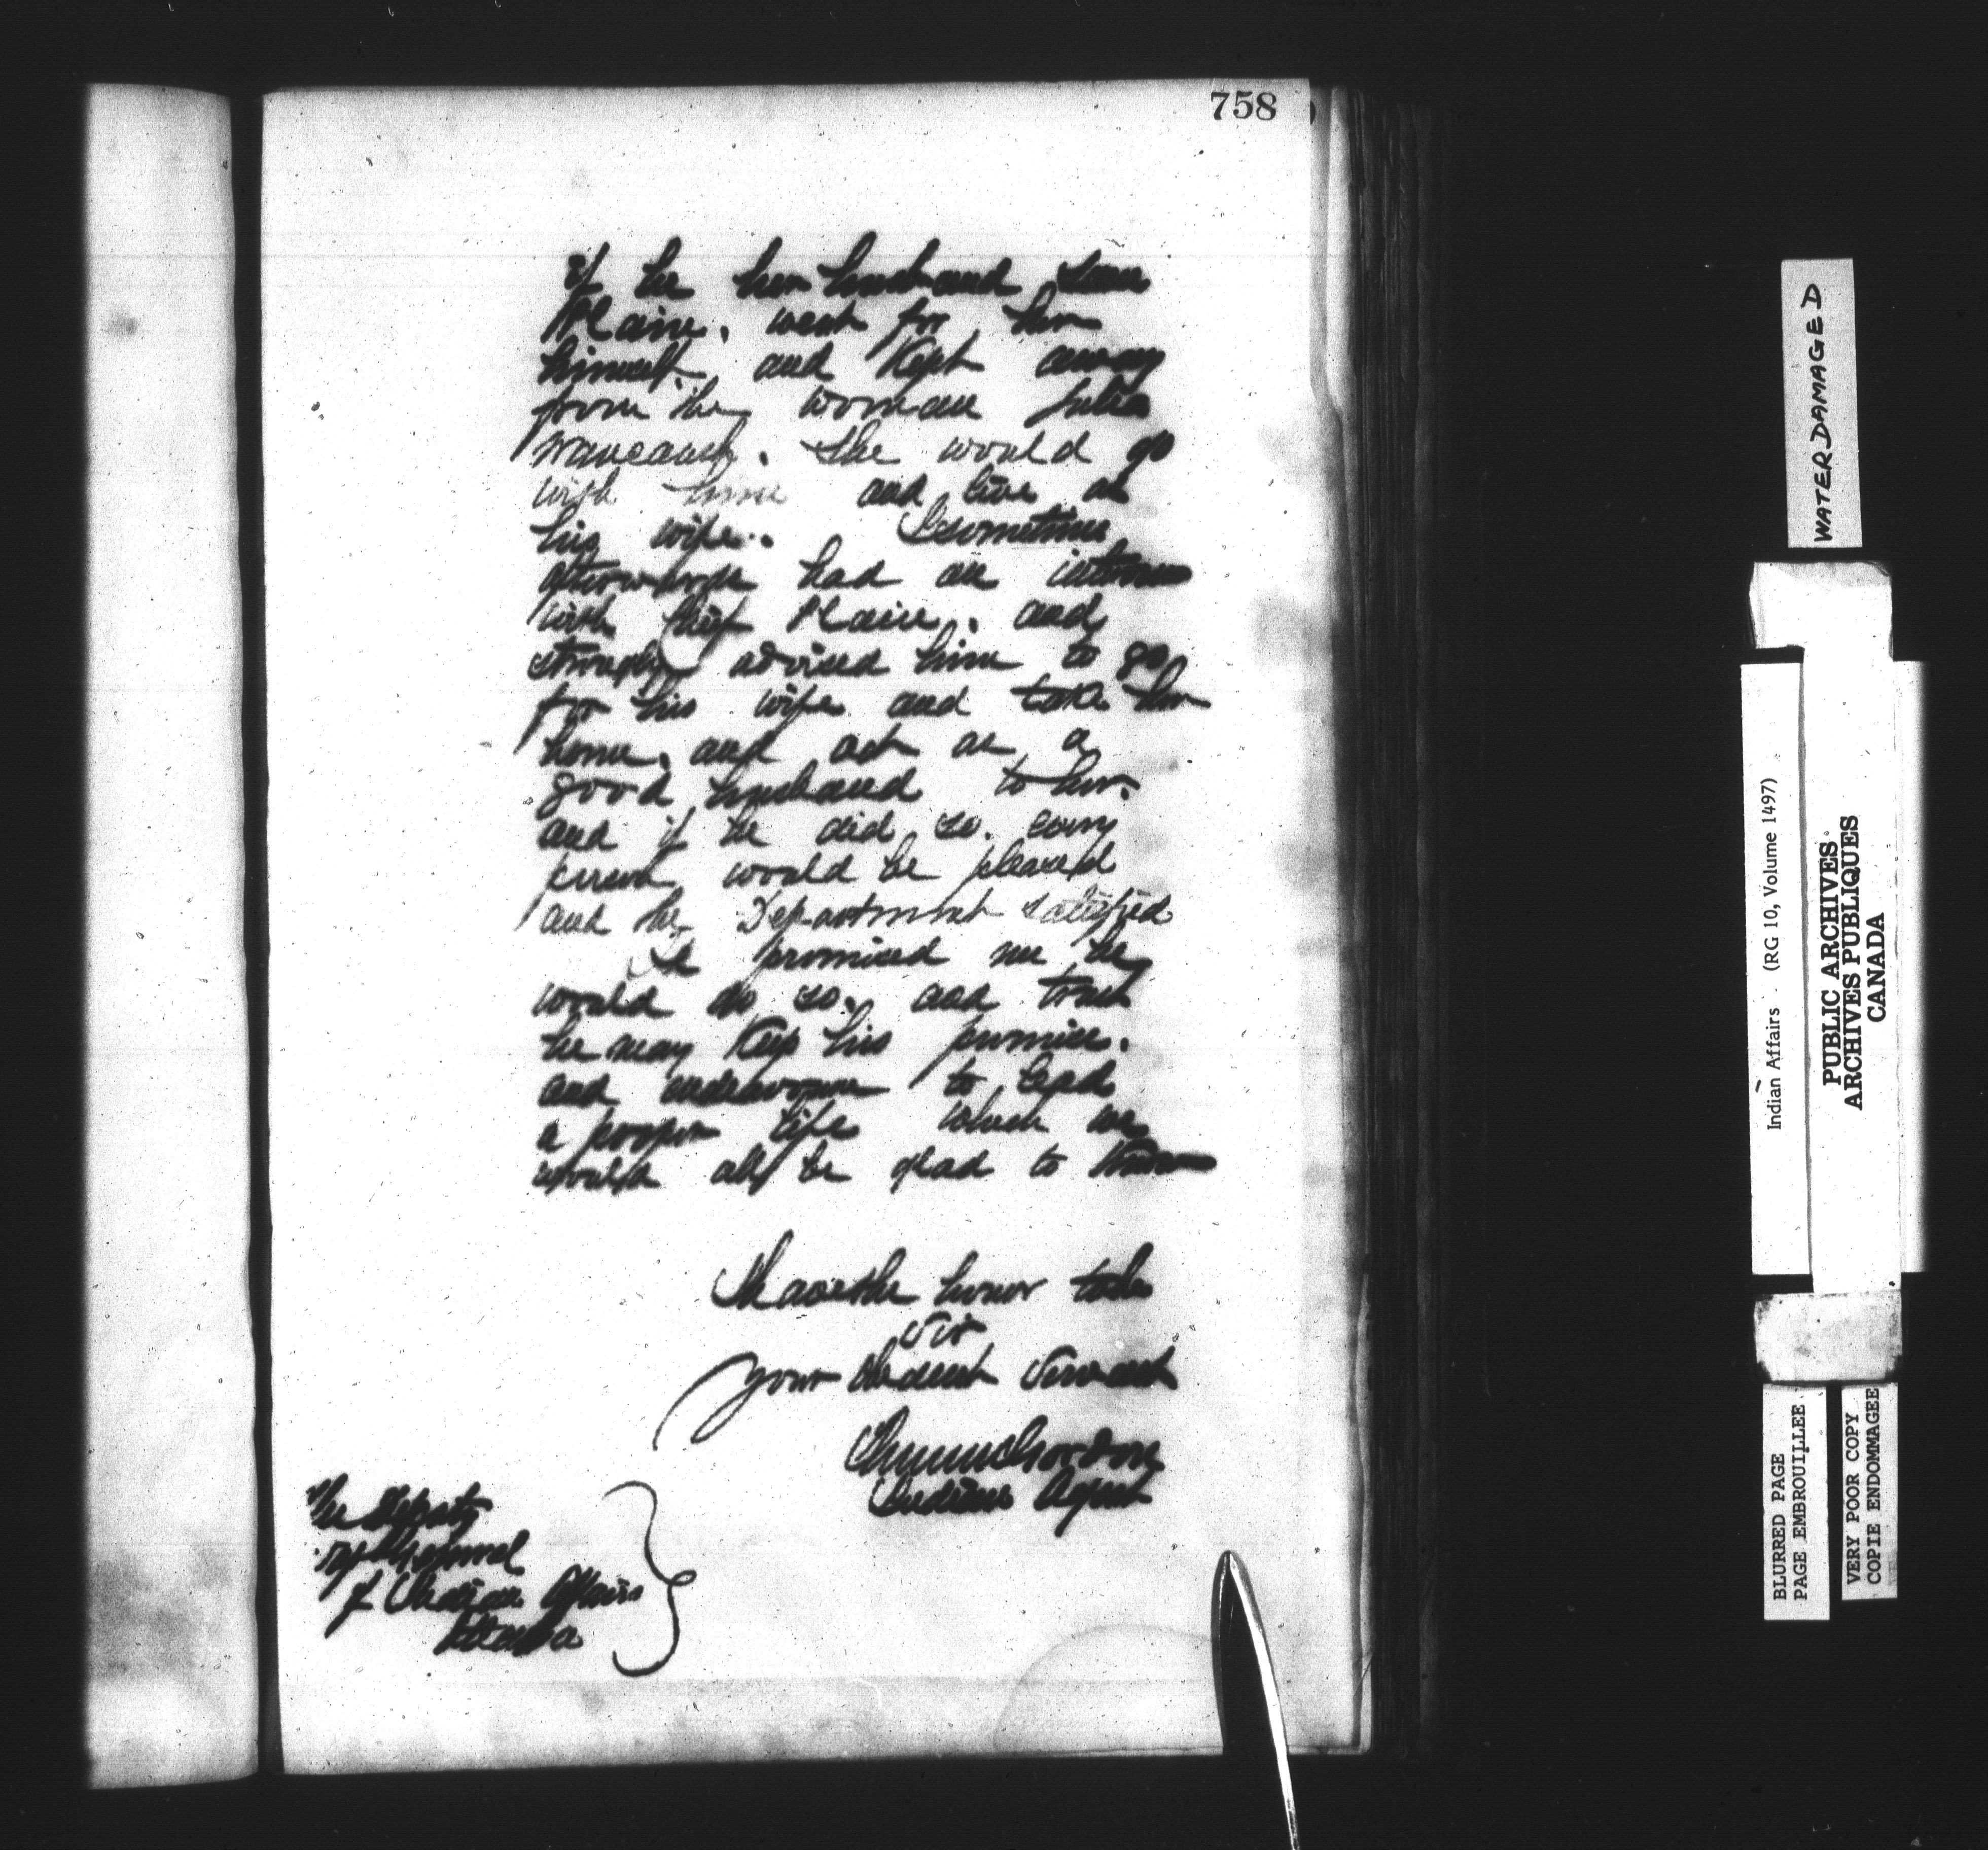 758
if he her husband Sam
Plain. went for her
himself, and kept away
from the woman Julia
. She would go
with him and live as
his wife. I sometime
afterwards had an interview
with Chief Plain. and
strongly advised him to go
for his wife and take her
home. and act as a
good husband to her.
and if he did so. every
person would be pleased
and the Department satisfied
He promised me he
would do so. and trust
he may keep his promise.
and endeavour to lead
a proper life which we
would all be glad to know
I have the honor to be
Sir
Your obedient Servant
Gordon
Indian Agent
The Deputy
of Indian Affairs
Ottawa
WATER DAMAGED
Indian Affairs (RG 10, Volume 1497)
PUBLIC ARCHIVES
ARCHIVES PUBLIQUES
CANADA
BLURRED PAGE
PAGE EMBROUILLEE
VERY POOR COPY
COPIE ENDOMMAGEE